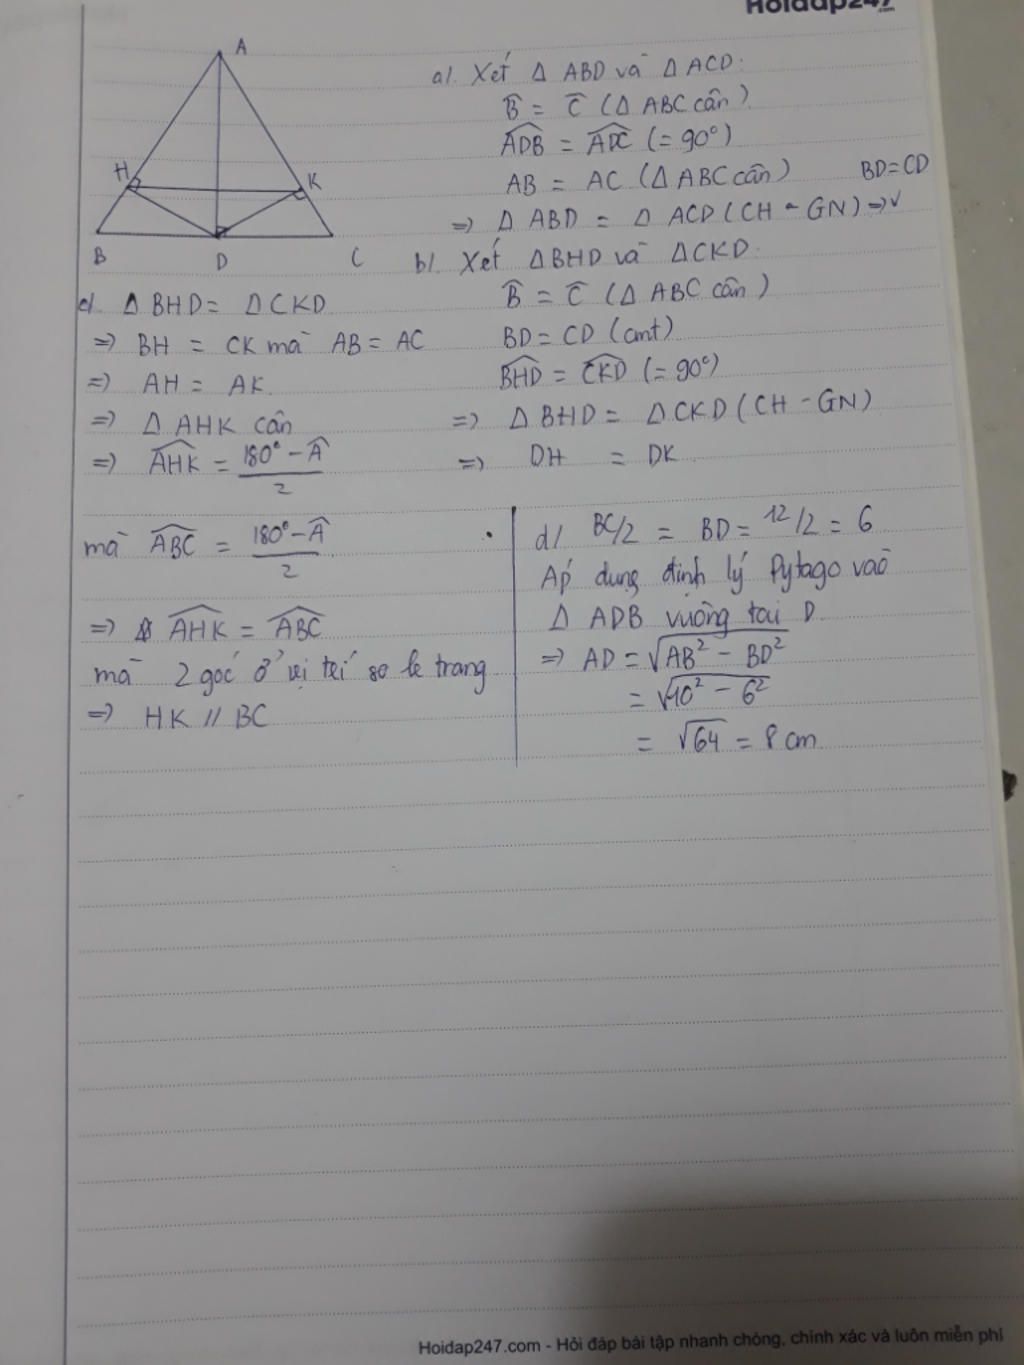 Hoidap247
.com
A
H
K
B
D
C
a/. Xét Δ ABD và Δ ACD:
B̂ = Ĉ (Δ ABC cân)
ADB̂ = ADĈ (= 90°)
AB = AC (Δ ABC cân) BD = CD
=> Δ ABD = Δ ACD (CH - GN) => √
b/. Xét Δ BHD và Δ CKD.
B̂ = Ĉ (Δ ABC cân)
BD = CD (cmt)
BHD̂ = CKD̂ (= 90°)
=> Δ BHD = Δ CKD (CH - GN)
=> DH = DK
c/. Δ BHD = Δ CKD
=> BH = CK mà AB = AC
=> AH = AK
=> Δ AHK cân
=> AHK̂ = 180° - Â / 2
mà ABĈ = 180° - Â / 2
=> AHK̂ = ABĈ
mà 2 góc ở vị trí so le trang
=> HK // BC
d/ BC/2 = BD = 12/2 = 6
Áp dụng định lý Pytago vào
Δ ADB vuông tại D
=> AD = √AB² - BD²
= √10² - 6²
= √64 = 8 cm
Hoidap247.com - Hỏi đáp bài tập nhanh chóng, chính xác và luôn miễn phí